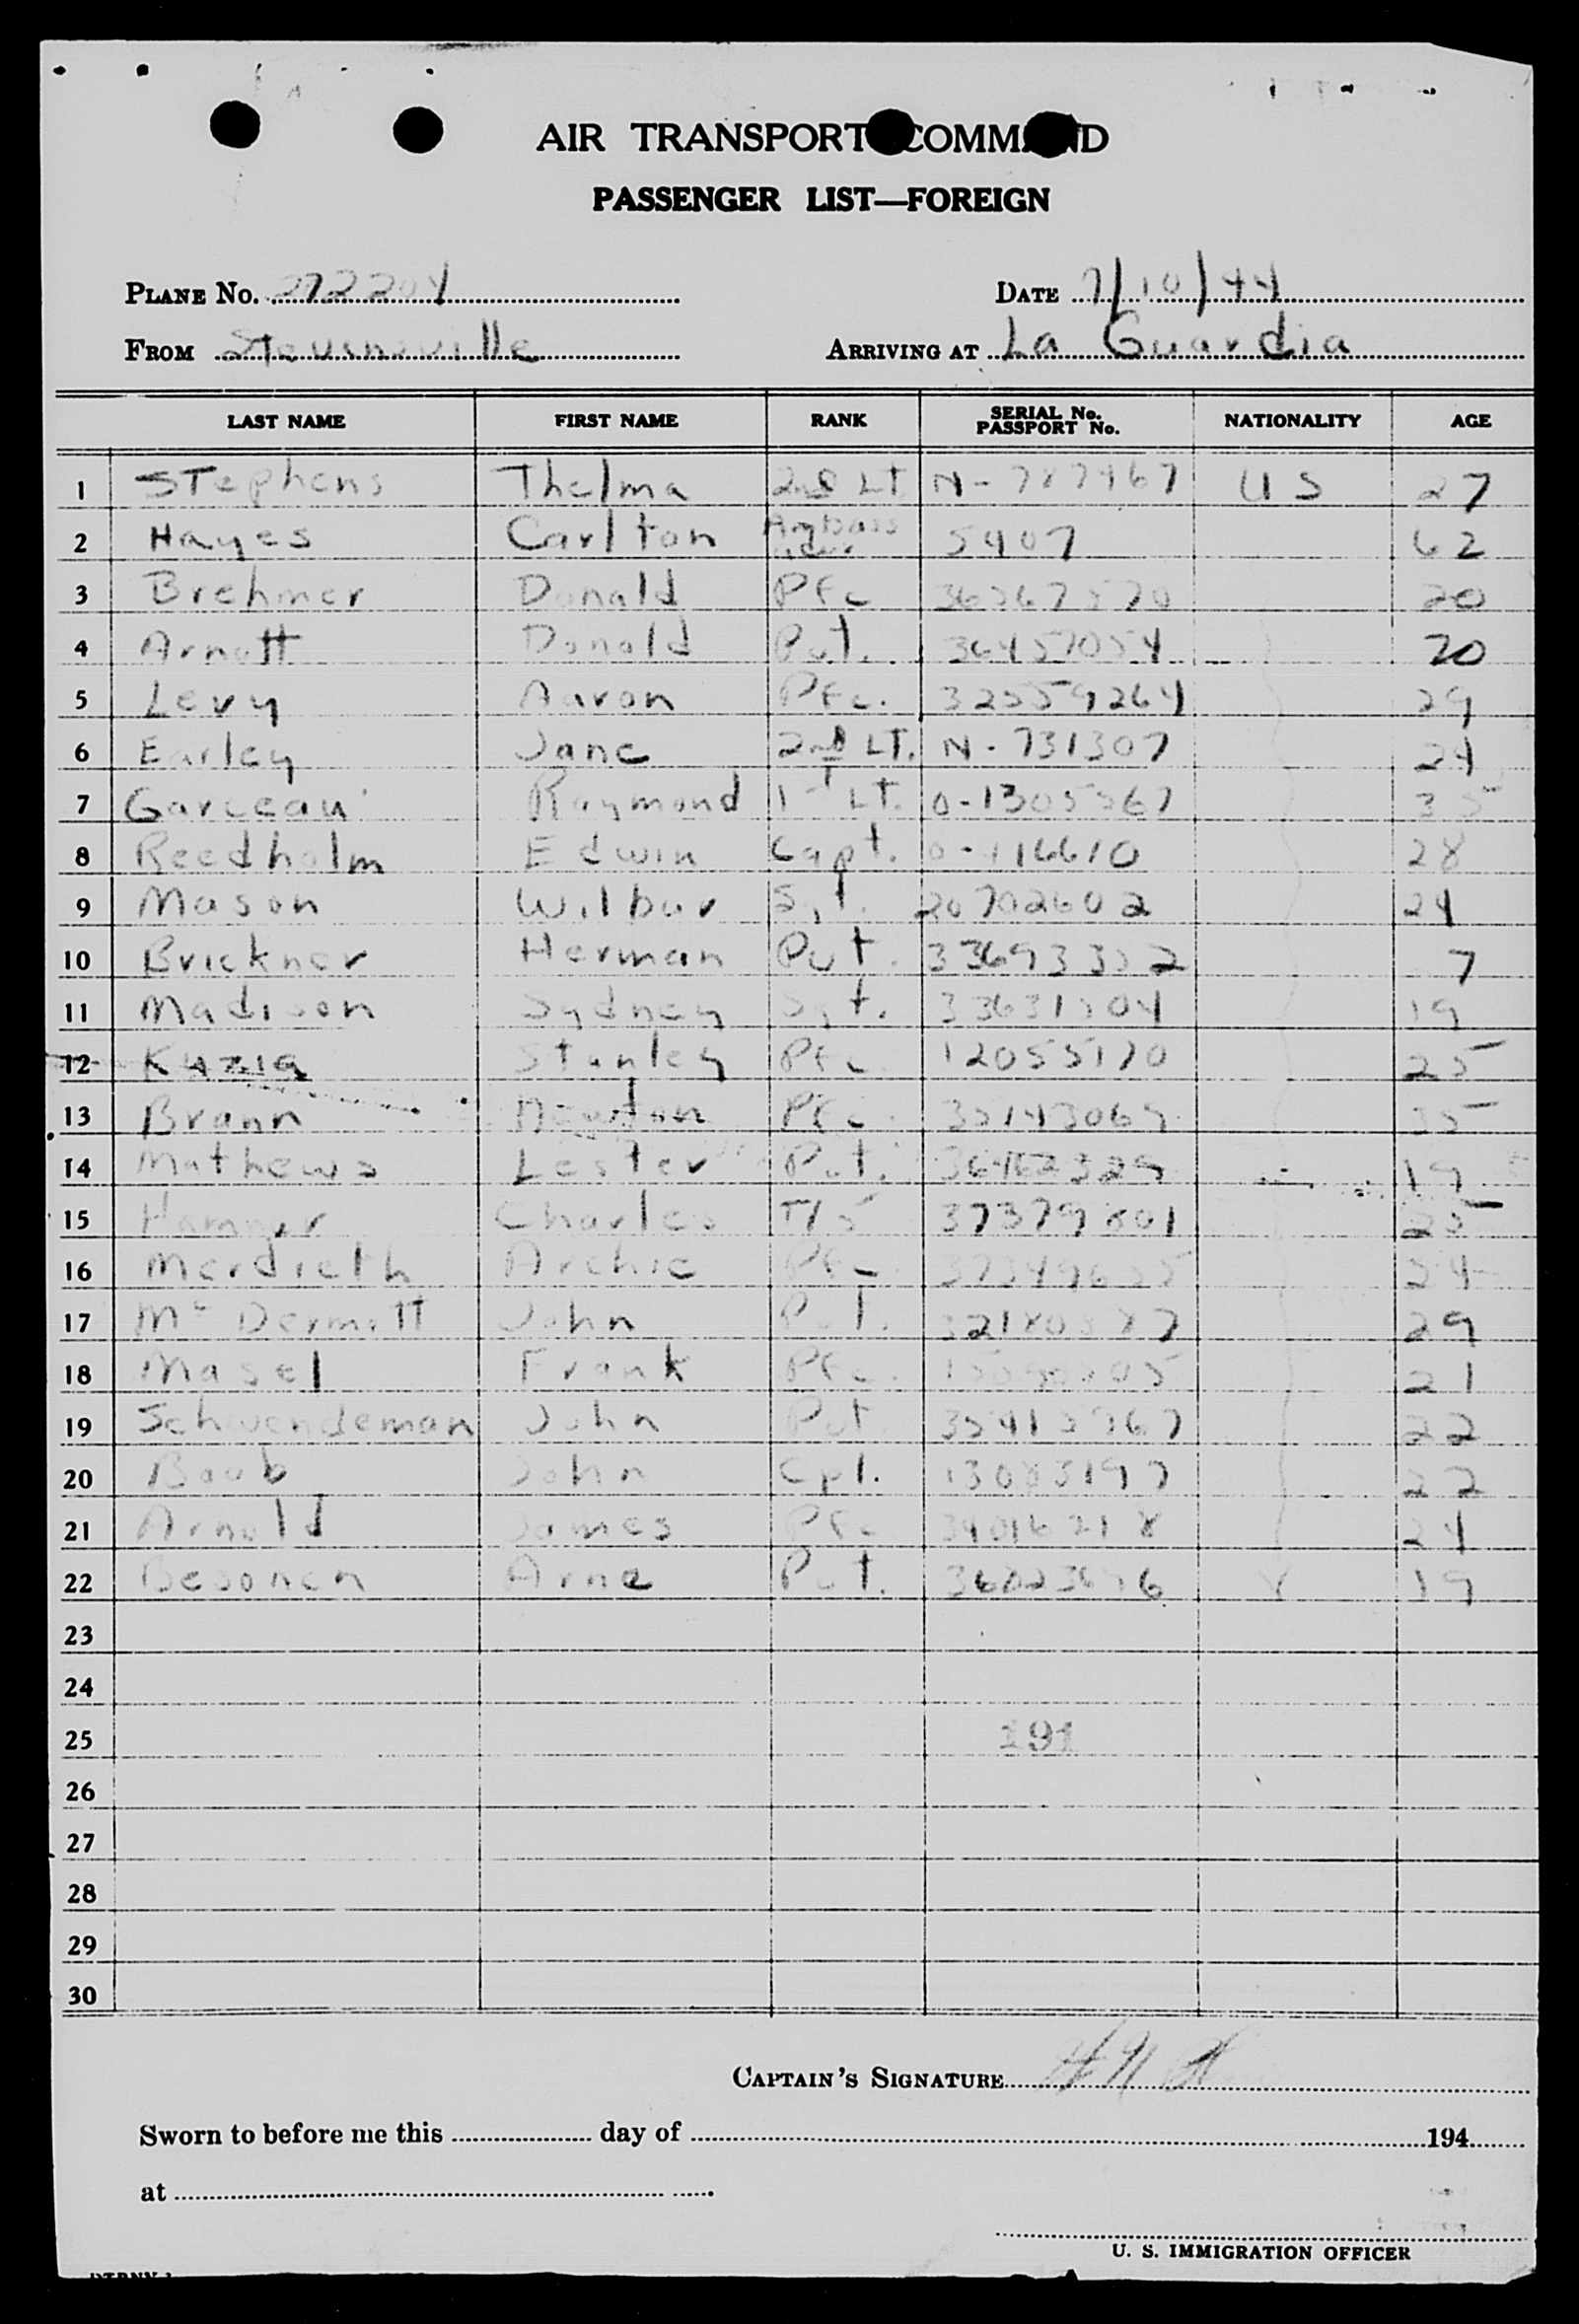 AIR TRANSPORT COMMAND
PASSENGER LIST—FOREIGN
PLANE No. 272204 DATE 7/10/44
FROM Stevensville ARRIVING AT La Guardia
LAST NAME FIRST NAME RANK SERIAL No. PASSPORT No. NATIONALITY AGE
1 Stephens Thelma 2nd LT N-787467 US 27
2 Hayes Carlton Ambassador 5407 62
3 Brehmer Donald Pfc 20
4 Arnott Donald Pvt. 36457054 20
5 Levy Aaron Pfc. 32559264 29
6 Earley Jane 2nd LT. N-731307 24
7 Garceau Raymond 1st LT. 0-1305567 35
8 Reedholm Edwin Capt. 0-416610 28
9 Mason Wilbur Sgt. 20702602 24
10 Brickner Herman Pvt. 7
11 Madison Sydney Sgt. 19
12 Kuzia Stanley Pfc 12055170 25
13 Brann Pfc 35143069 35
14 Mathews Lester Pvt. 36462329 19
15 Hammer Charles T/5 37379801 25
16 Merdieth Archie Pfc 24
17 McDermott John Pvt. 29
18 Masel Frank Pfc. 21
19 Schwendeman John Pvt 22
20 Boob John Cpl. 13083197 22
21 Arnold James Pfc 34016218 24
22 Besonen Arne Pvt. 19
23
24
25 191
26
27
28
29
30
CAPTAIN'S SIGNATURE
Sworn to before me this day of 194
at
U. S. IMMIGRATION OFFICER